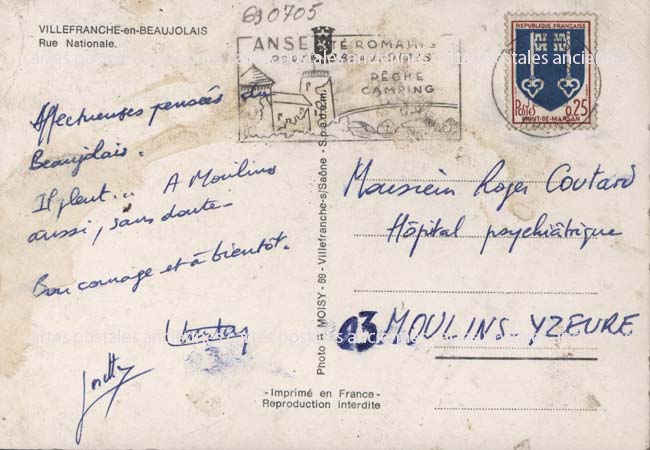 690705
VILLEFRANCHE-en-BEAUJOLAIS
Rue Nationale.
ANSE CITÉ ROMAINE
PORTE BEAUJOLAIS
PÊCHE
CAMPING
REPUBLIQUE FRANÇAISE
POSTES 0,25
MONT-DE-MARSAN
Affectueuses pensées
Beaujolais.
Il pleut... A Moulins
aussi, sans doute.
Bon courage et à bientôt.
Photo MOISY - 69 - Villefranche-s/Saône - S.P.A.D.E.M.
Monsieur Roger Coutard
Hôpital psychiâtrique
03 MOULINS-YZEURE
- Imprimé en France -
Reproduction Interdite
cartes postales anciennes